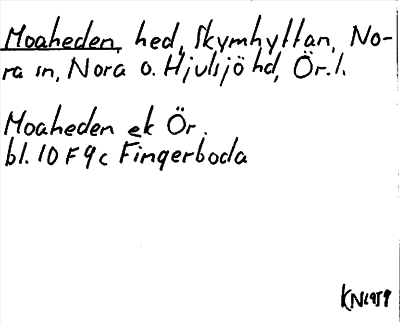 Moaheden, hed, Skymhyttan, No-
ra sn, Nora o. Hjulsjö hd, Ör. l.
Moaheden ek Ör.
bl. 10 F 9 c Fingerboda